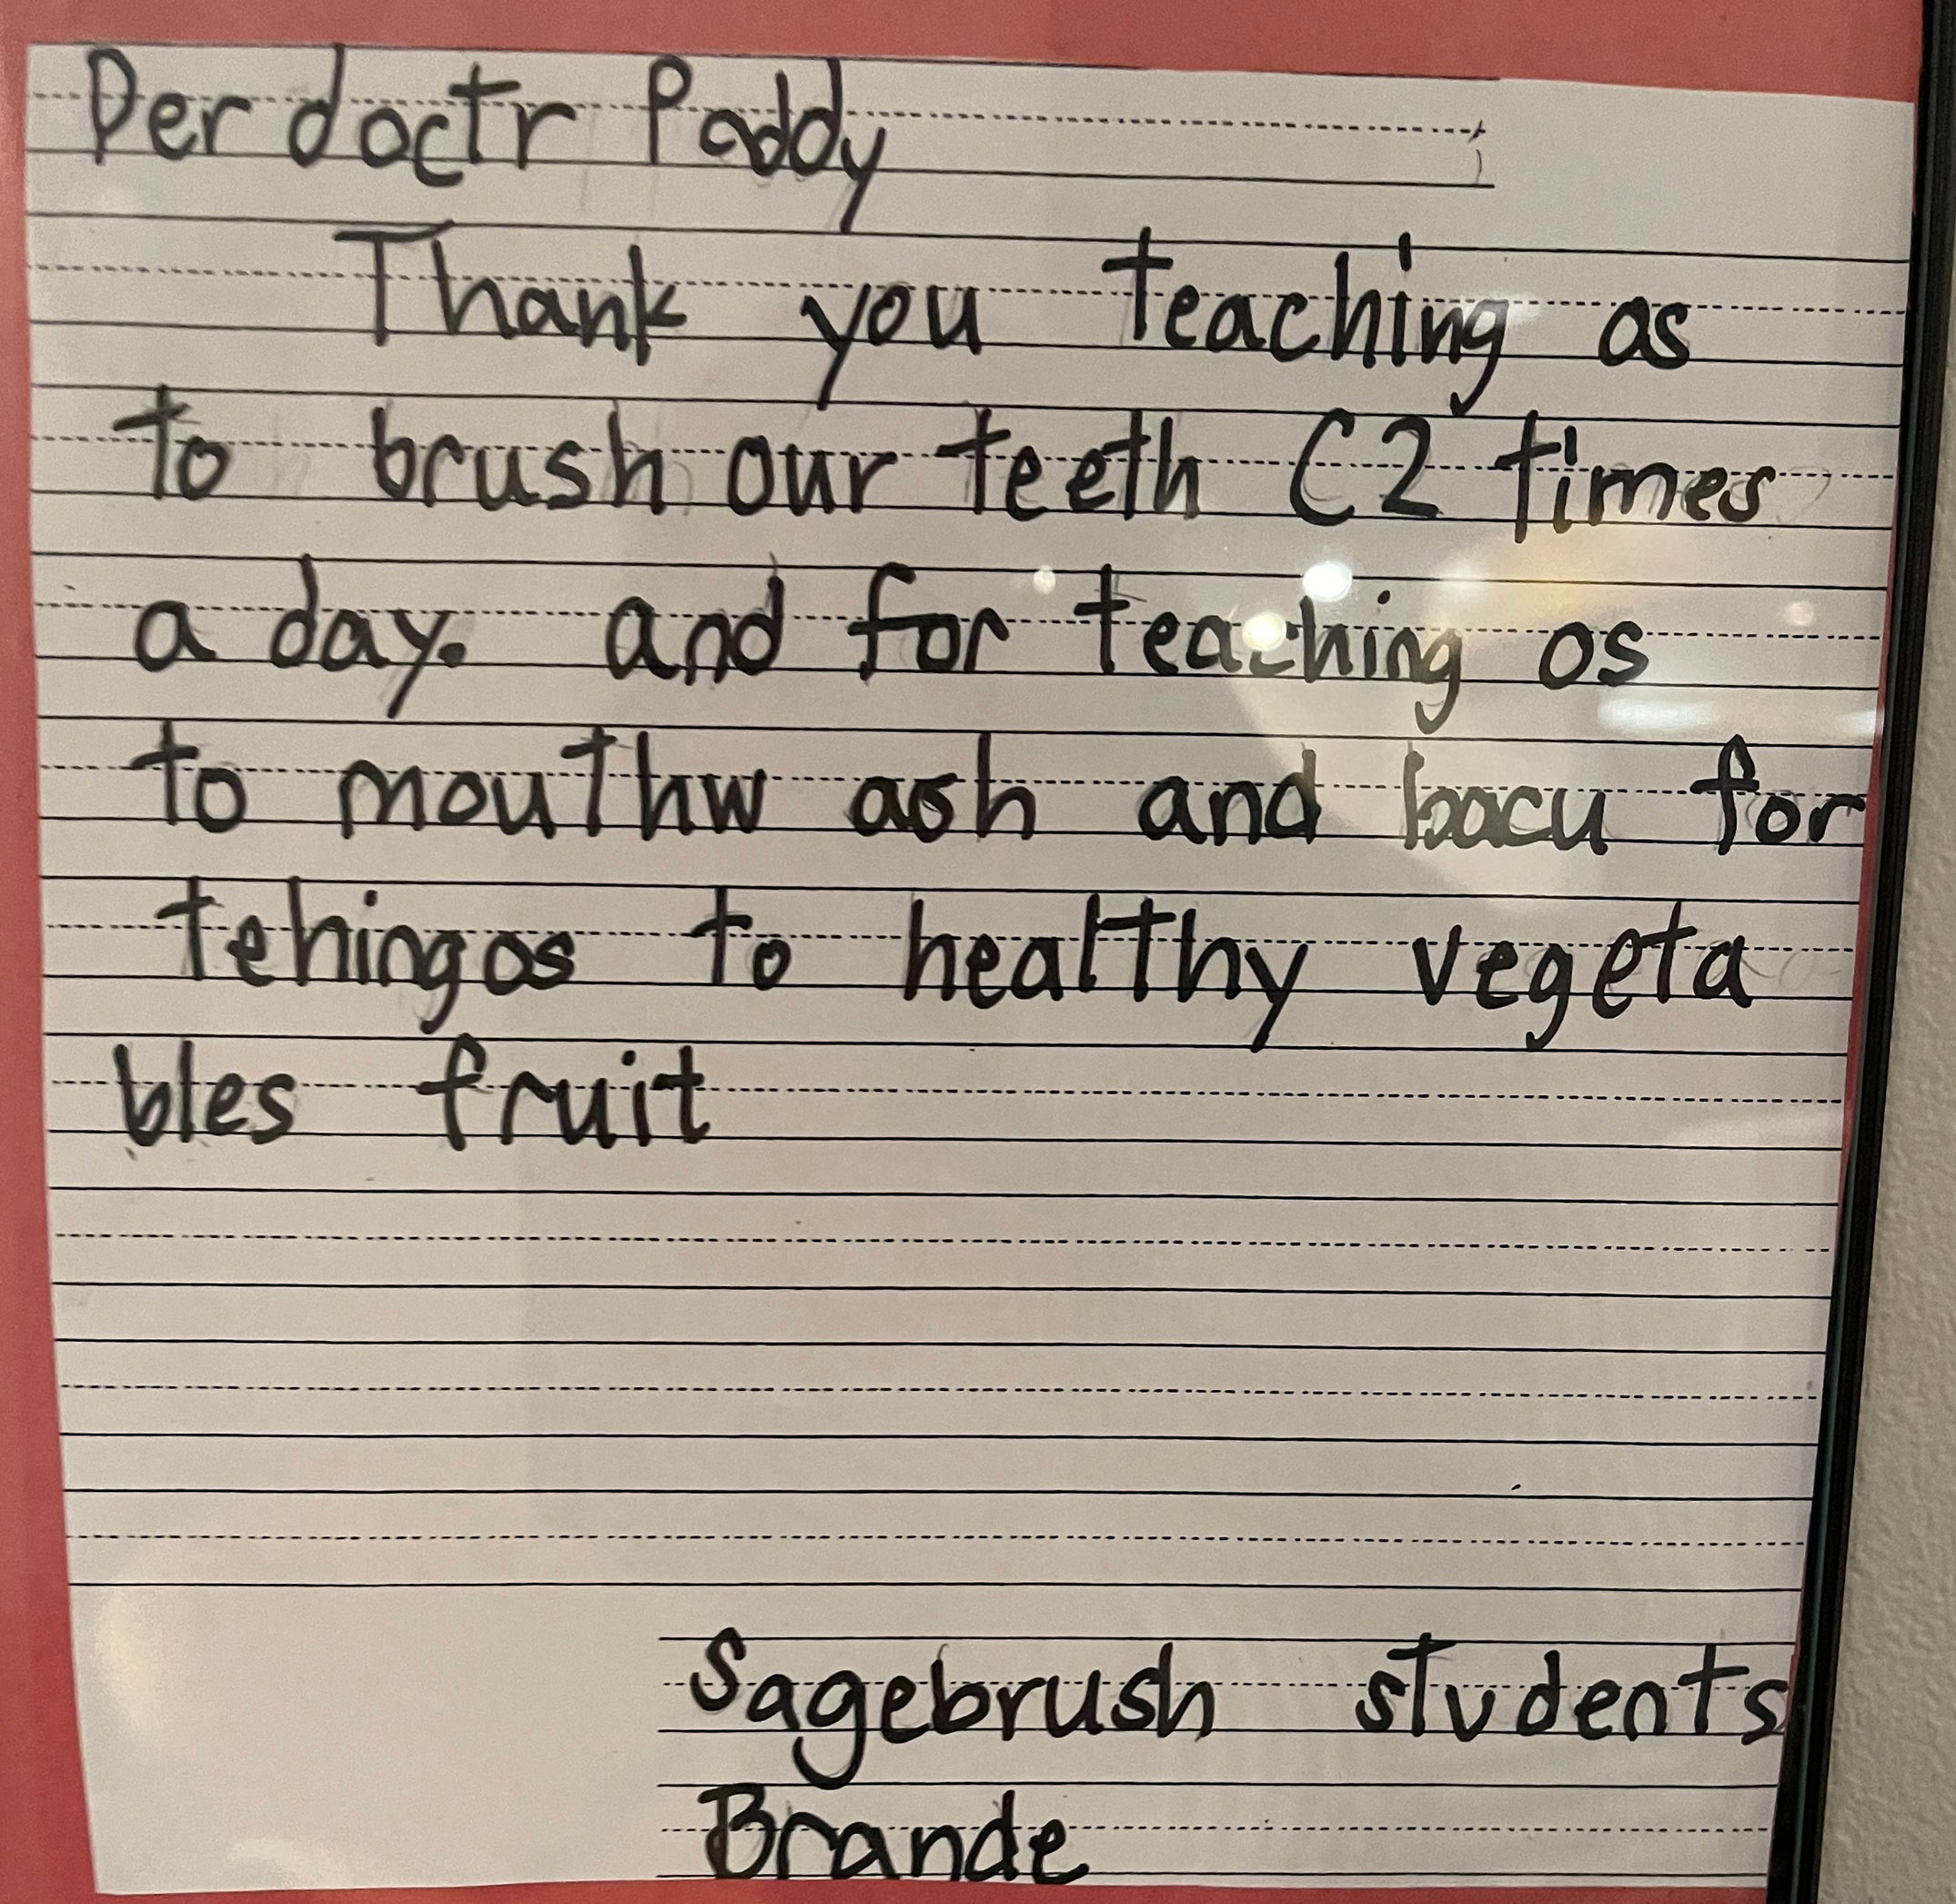 Der doctr Paddy
Thank you teaching as
to brush our teeth C2 times
a day. and for teaching os
to mouthw ash and bacu for
tehing os to healthy vegeta
bles fruit
Sagebrush students
Brande